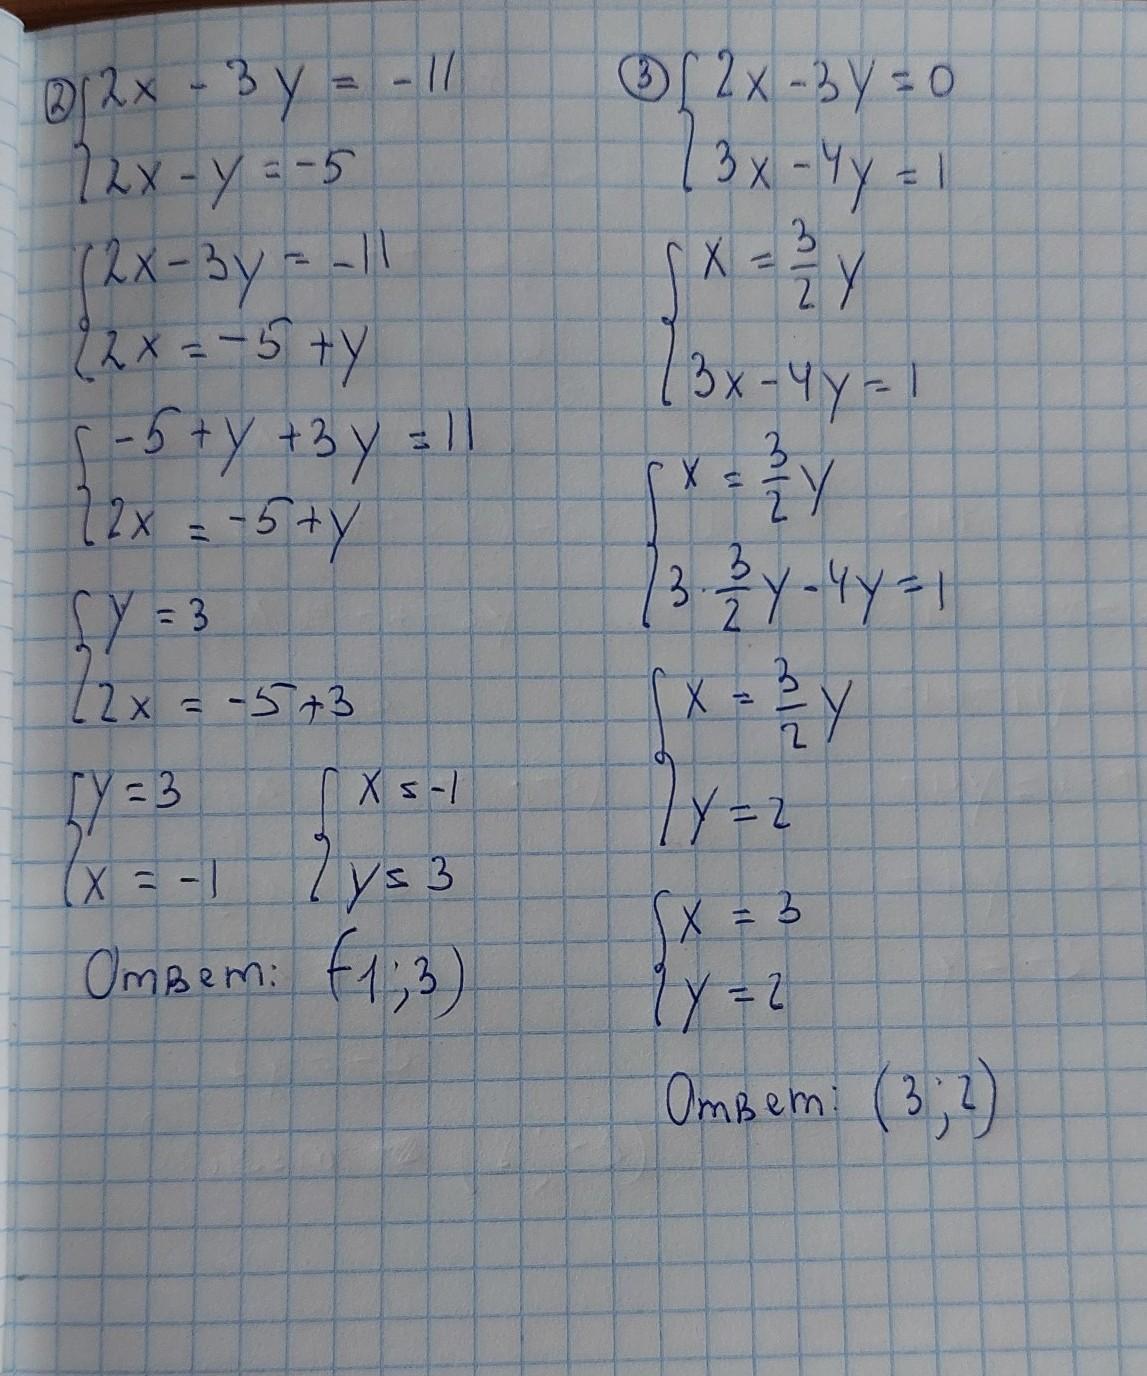 ② { 2x - 3y = -11
2x - y = -5
{ 2x - 3y = -11
2x = -5 + y
{ -5 + y + 3y = 11
2x = -5 + y
{ y = 3
2x = -5 + 3
{ y = 3
x = -1
{ x = -1
y = 3
Ответ: (-1; 3)
③ { 2x - 3y = 0
3x - 4y = 1
{ x = 3/2 y
3x - 4y = 1
{ x = 3/2 y
3 · 3/2 y - 4y = 1
{ x = 3/2 y
y = 2
{ x = 3
y = 2
Ответ: (3; 2)